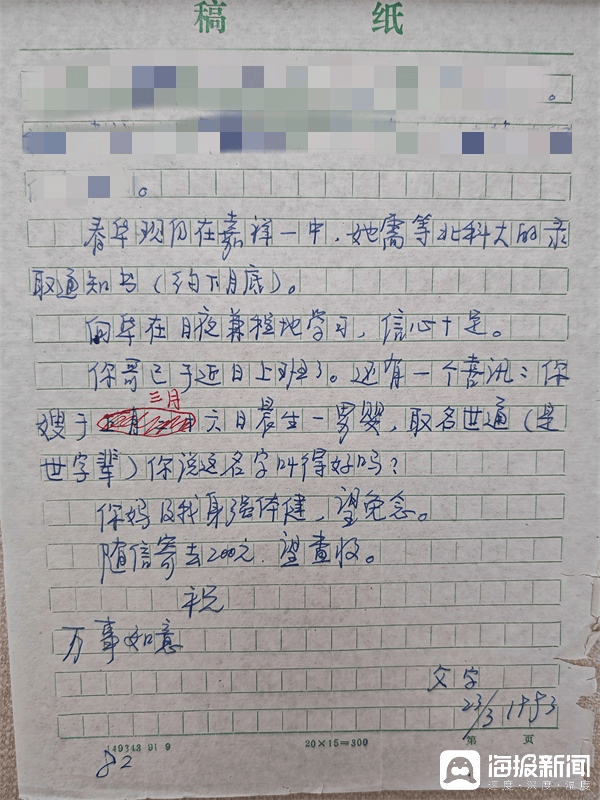 稿 纸
。
。
春华现仍在嘉祥一中,她需等北科大的录
取通知书(约下月底)。
向华在日夜兼程地学习,信心十足。
你哥已于近日上班了。还有一个喜讯:你
三月
嫂于六日晨生一男婴,取名世通(是
世字辈)你说这名字叫得好吗?
你妈及我身强体健,望免念。
随信寄去200元.望查收。
祝
万事如意
文字
23/3
49343 91 9
20×15=300
第 页
82
海报新闻
深度·深度·温度